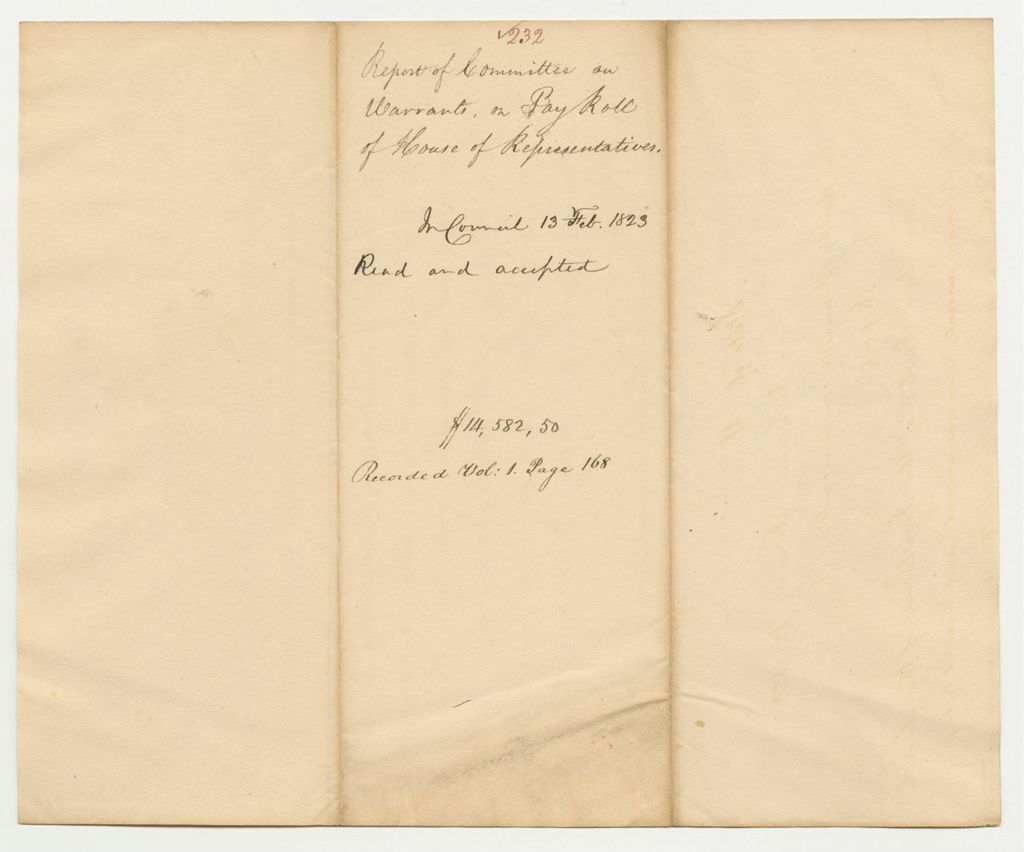 ✓232
Report of Committee on
Warrants, on Pay Roll
of House of Representatives.
In Council 13 Feb. 1823
Read and accepted
$14,582,50
Recorded Vol: 1. Page 168